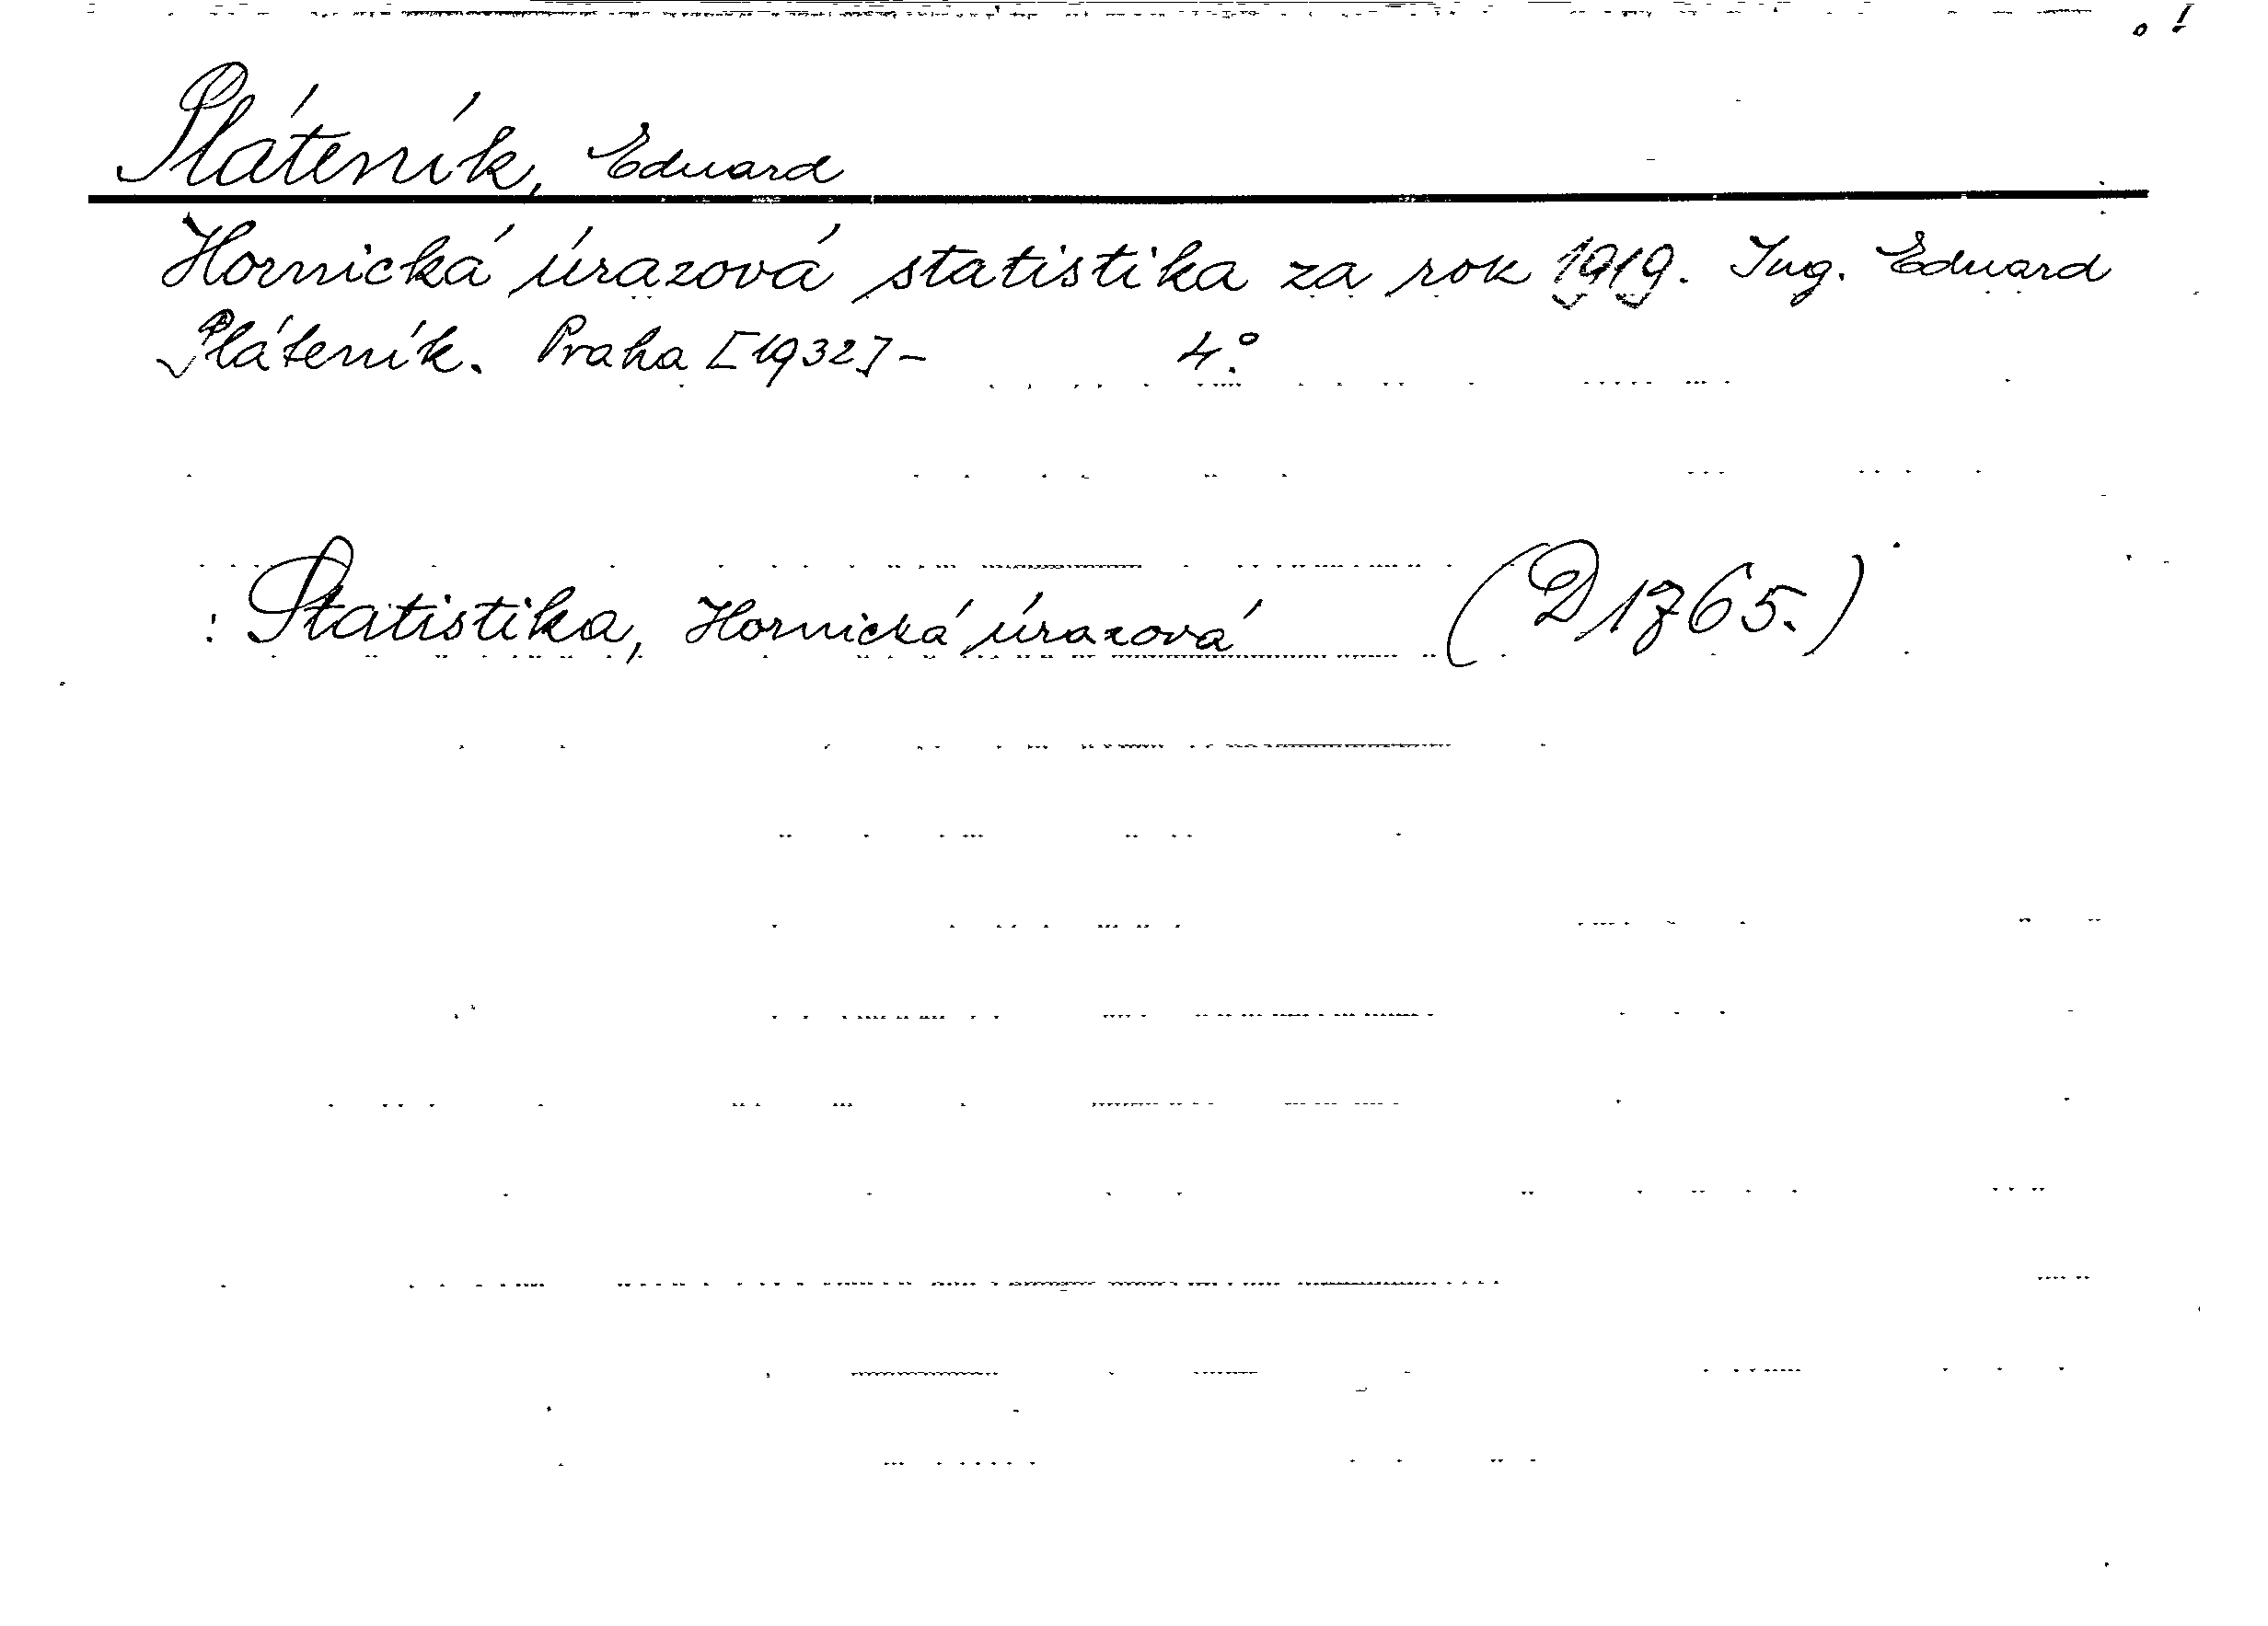 Pláteník, Eduard
Hornická úrazová statistika za rok 1919. Ing. Eduard
Pláteník. Praha [1932] - 4°.
: Statistika, Hornická úrazová (D 1765.)